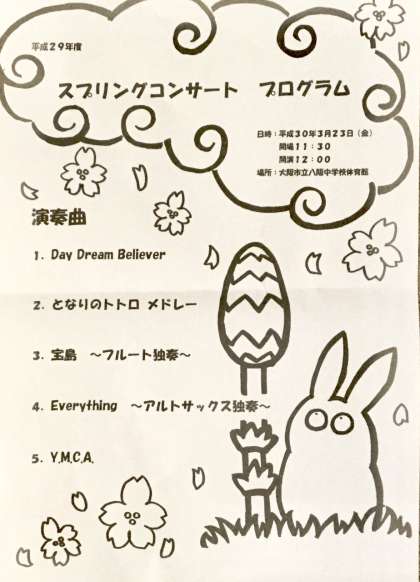 平成29年度
スプリングコンサート プログラム
日時：平成30年3月23日（金）
開場11：30
開演12：00
場所：大阪市立八阪中学校体育館
演奏曲
1. Day Dream Believer
2. となりのトトロ メドレー
3. 宝島 ～フルート独奏～
4. Everything ～アルトサックス独奏～
5. Y.M.C.A.